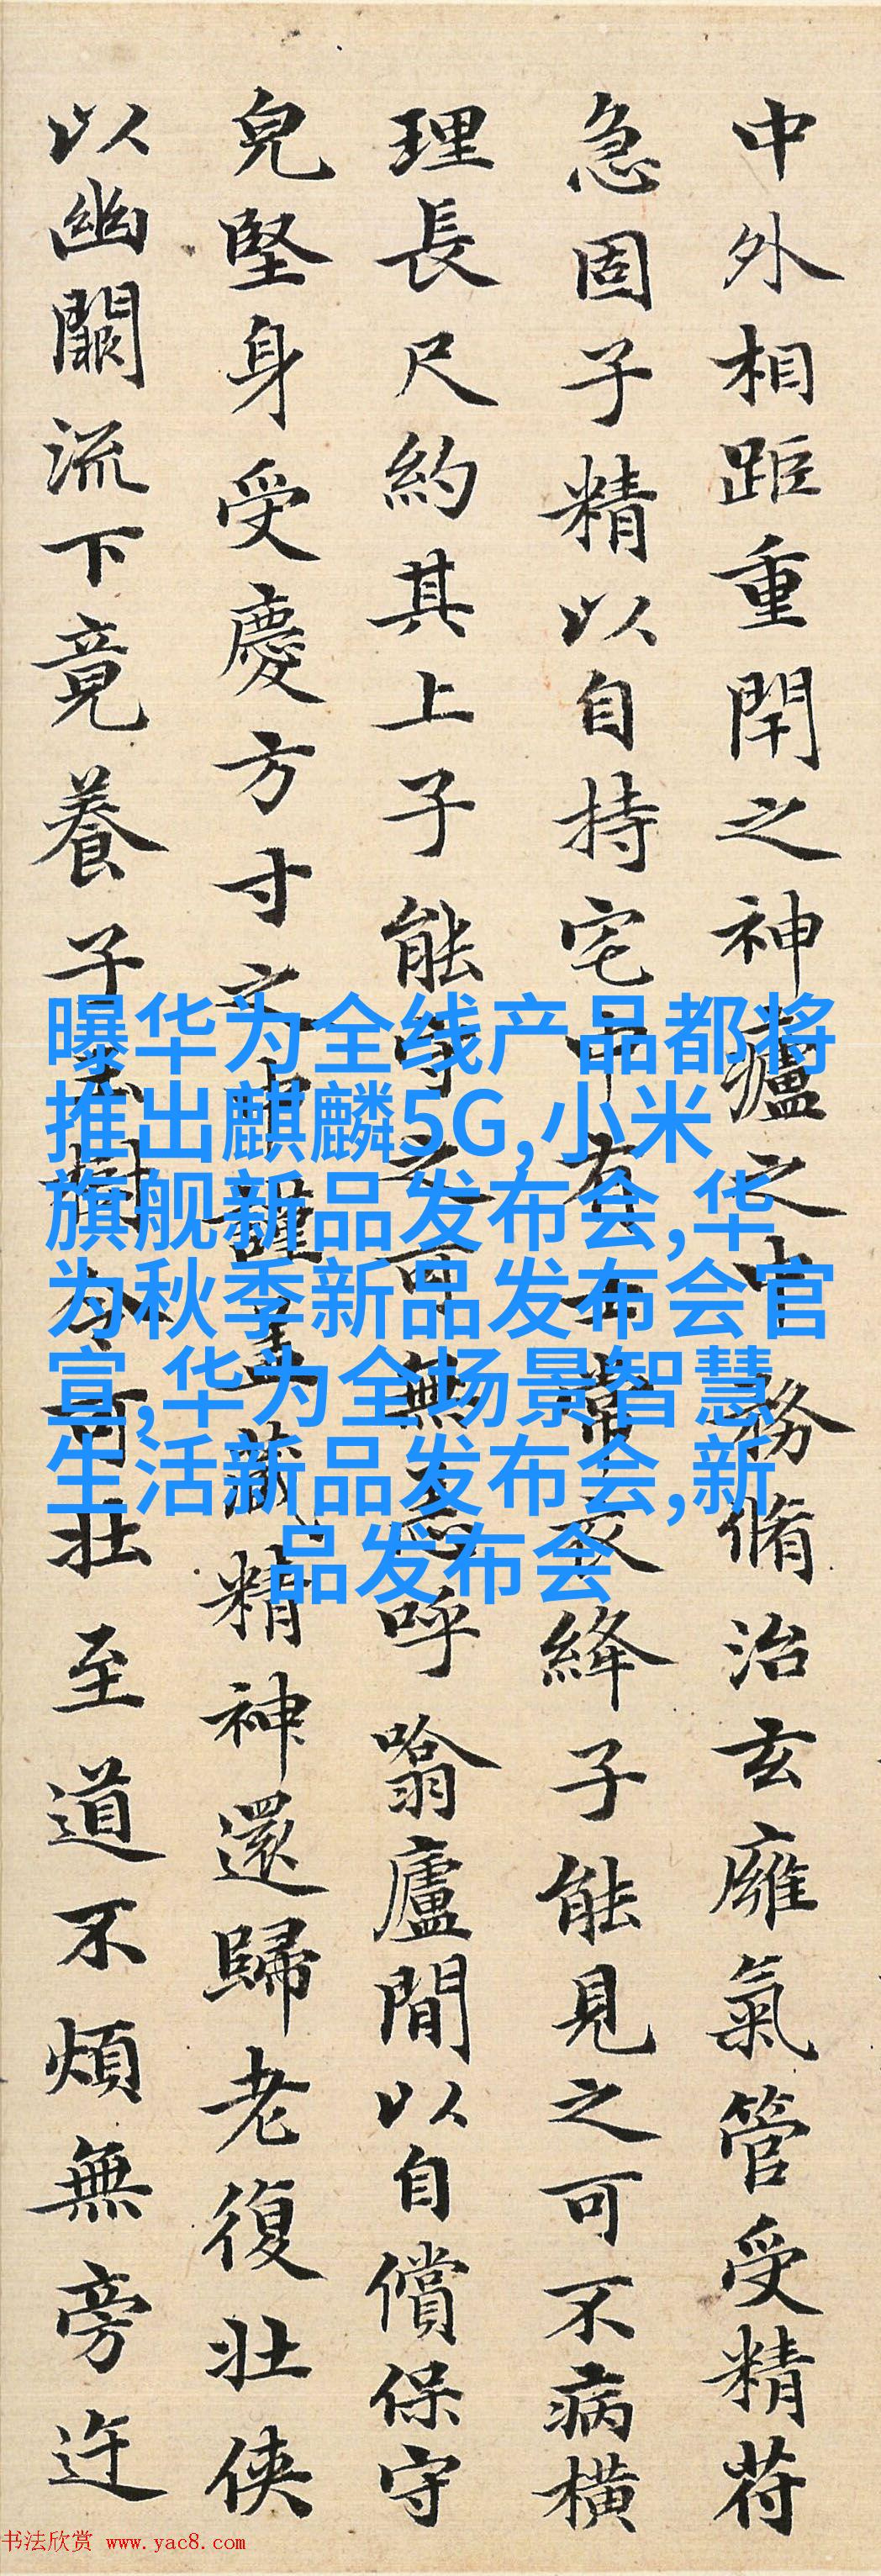 中外相距重閇之神廬之中務脩治玄廱氣管受精苻
急固子精以自持宅中有士常衣絳子能見之可不病橫
理長尺約其上子能守之可無恙呼噏廬間以自償保守
皃堅身受慶方寸之中謹蓋藏精神還歸老復壯俠
以幽闕流下竟養子玉樹令可壯至道不煩無旁迕
曝华为全线产品都将
推出麒麟5G,小米
旗舰新品发布会,华
为秋季新品发布会官
宣,华为全场景智慧
生活新品发布会,新
品发布会
书法欣赏 www.yac8.com